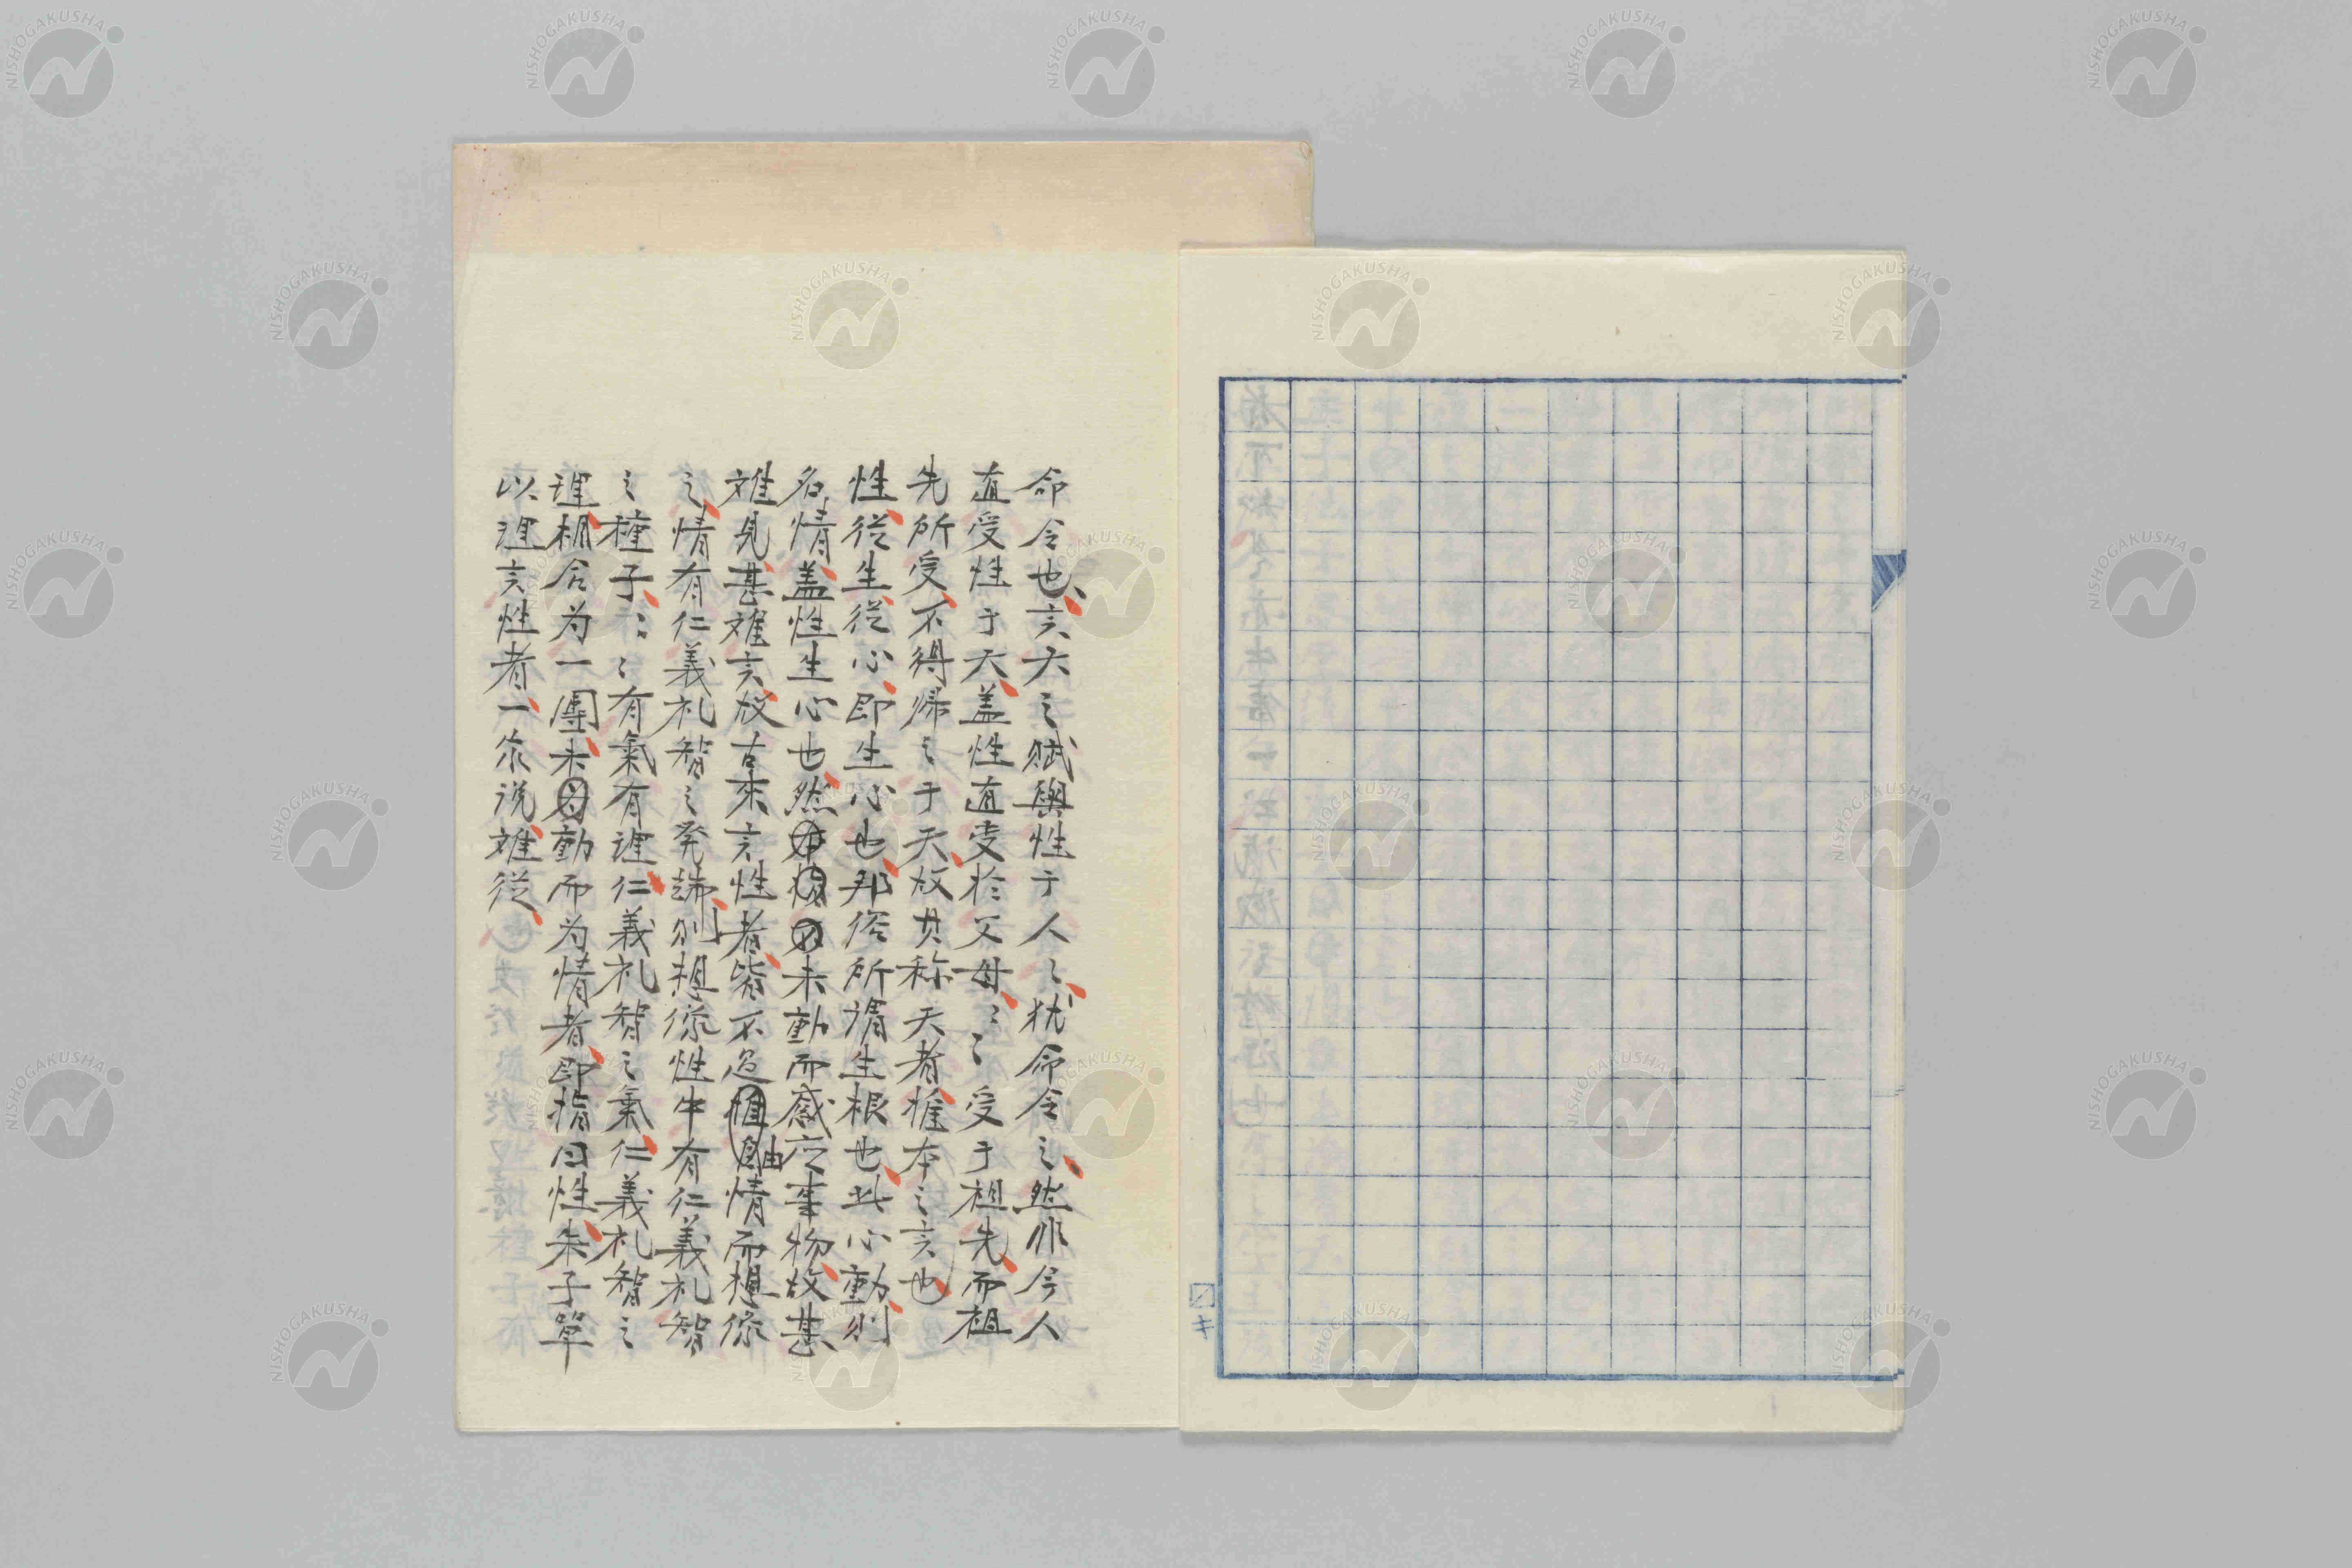 命令也、言天之賦與性于人、猶命令之、然非今人
直受性于天、盖性直受於父母、〻〻受于祖先、而祖
先所受、不得帰之于天、故其称天者、推本之言也
性、従生、従心、即生心也、邦俗所謂生根也、此心動、則
名、情、盖性生心也、然未動而感応事物、故甚
難見、甚難言、故古来言性者、皆不過由情而想像
之、情有仁義礼智之発端、則想像性中有仁義礼智
之種子、〻〻有氣有理、仁義礼智之氣、仁義礼智之
理、相合为一團、未動而为情者、即指曰性、朱子単
以理言性者、一家説、難従、
NISHOGAKUSHA